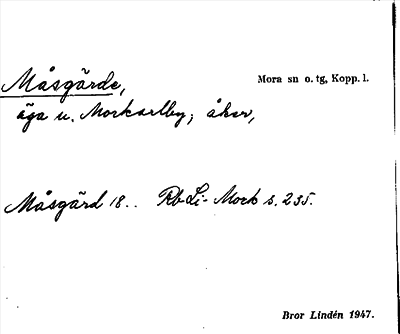 Måsgärde,
Mora sn o. tg, Kopp. l.
äga u. Morkarlby; åker,
Måsgärd 18.. Rb Li- Mork s. 235.
Bror Lindén 1947.